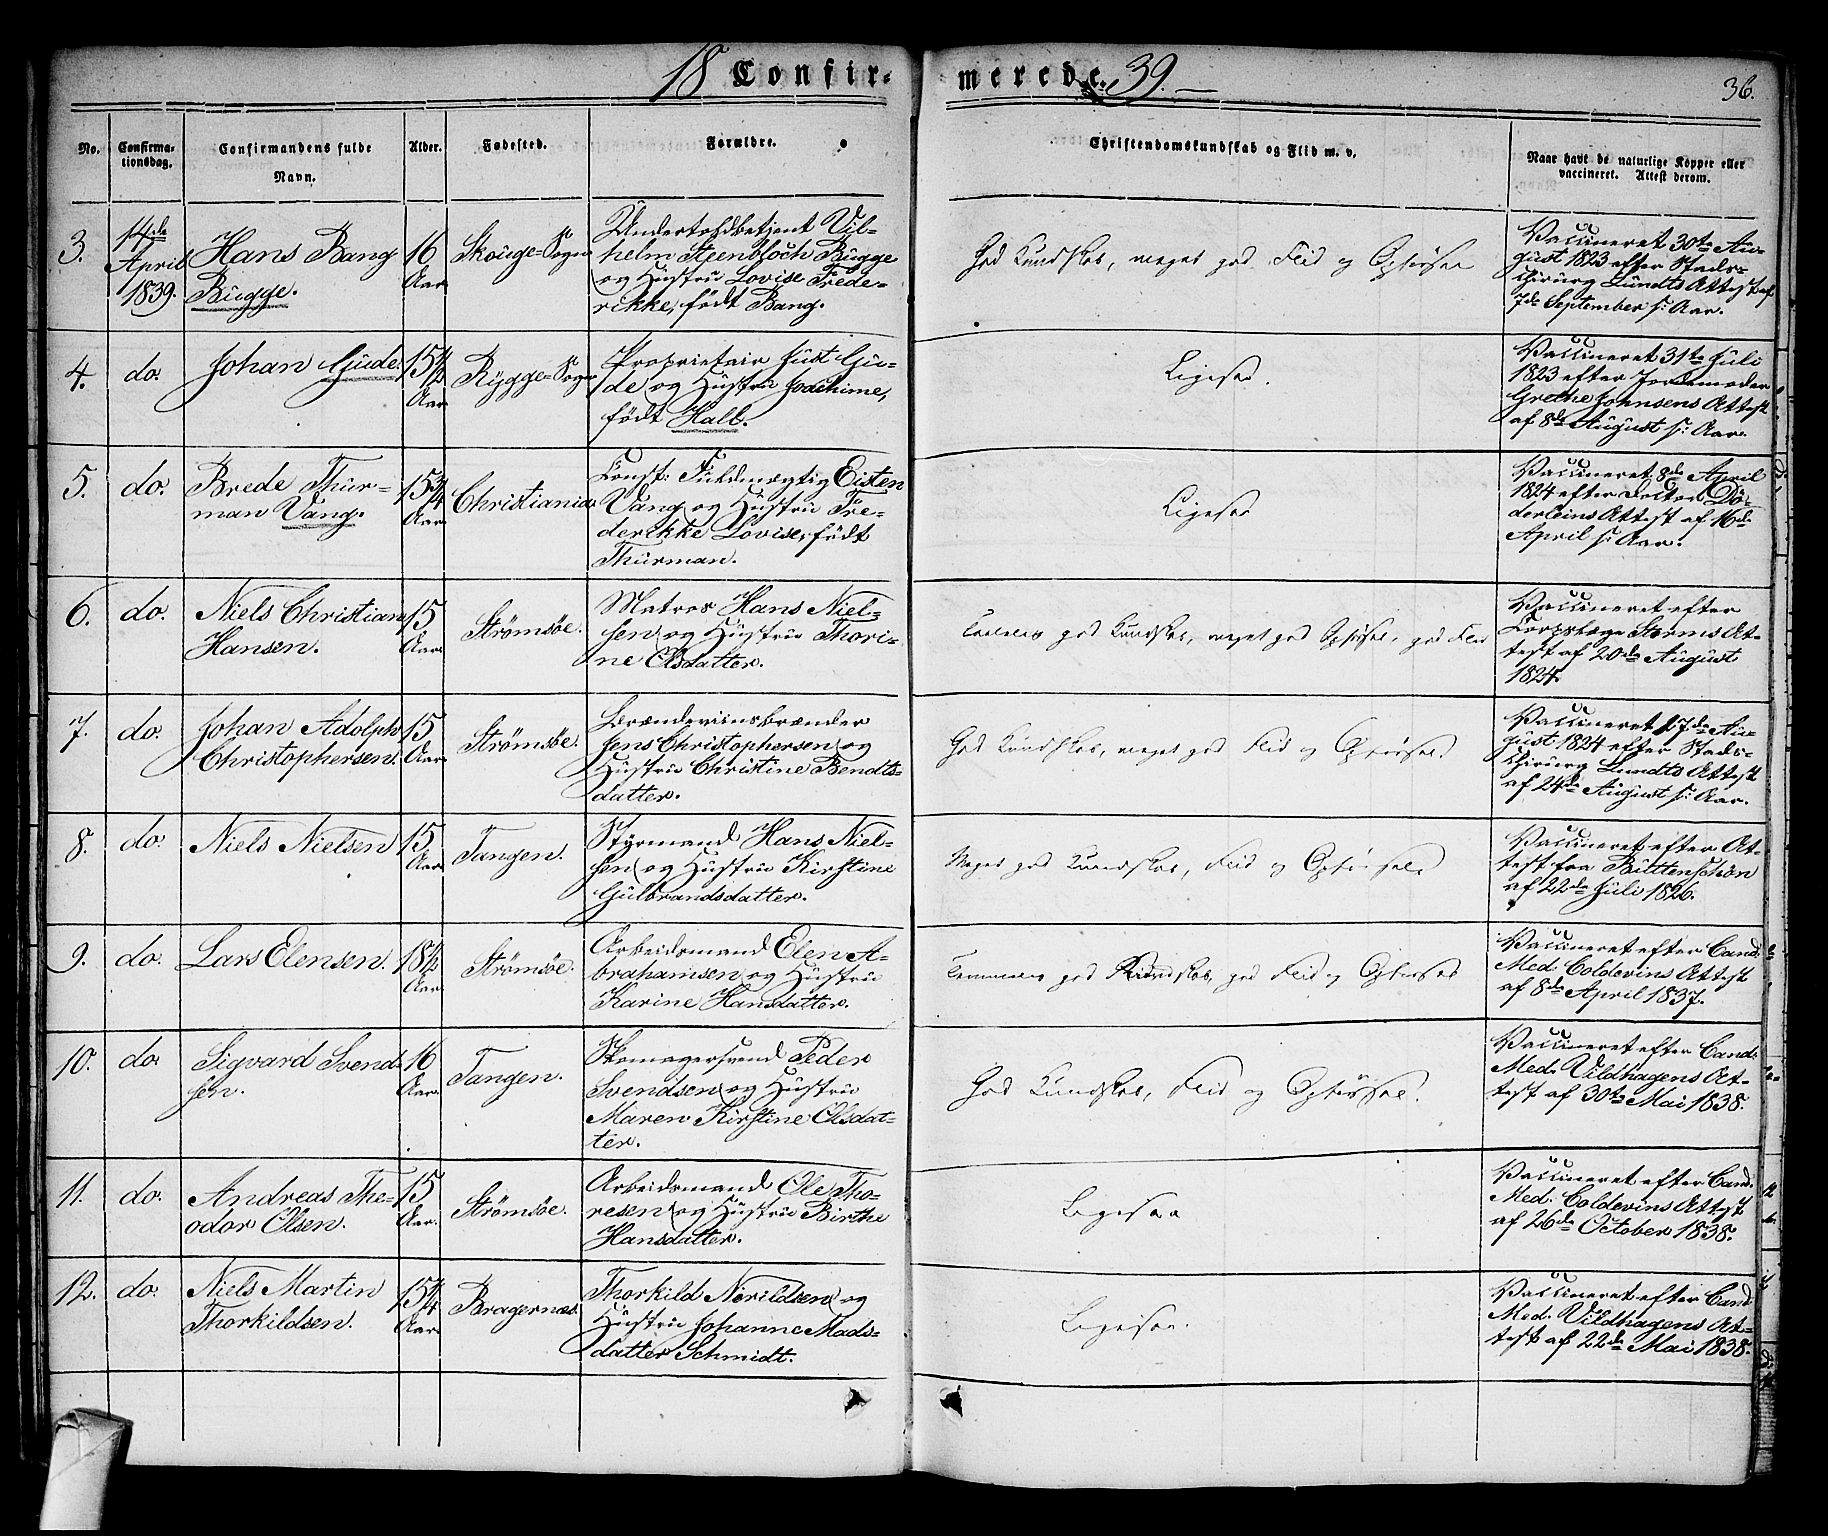 18 Confirmerede. 39.
36.
No. Confirma-tionsdag. Confirmandens fulde Navn. Alder. Fødested. Forældre. Christendomskundskab og Flid m. v. Naar havt de naturlige Kopper eller vaccineret. Attest derom.
3.
14de April 1839.
Hans Bang
Bugge.
16 Aar
Skouge-Sogn
Undertoldbetjent Vil-
helm Steenbloch Bugge
og Hustru Lovise Frede-
rikke, født Bang.
God Kundskab, meget god Flid og Opførsel
Vaccineret 30te Au-
gust 1823 efter Stads-
chirurg Lundts Attest af
7de September s: Aar.
4.
do.
Johan Gude.
15 1/2 Aar
Rygge-Sogn
Proprietair Just Gu-
de og Hustru Joachime,
født Hall.
Ligesaa.
Vaccineret 31te Juli
1823 efter Jordemoder
Grethe Johnsens Attest
af 8de August s: Aar.
5.
do.
Brede Thur-
man Vang.
15 3/4 Aar
Christiania
Const: Fuldmægtig Eisten
Vang og Hustru Fre-
derikke Lovise, født
Thurman.
Ligesaa
Vaccineret 8de April
1824 efter Doctor Dö-
derleins Attest af 16de
April s: Aar.
6.
do.
Niels Christian
Hansen.
15 Aar
Strømsøe.
Matros Hans Niel-
sen og Hustru Thori-
ne Olsdatter.
god Kundskab, meget god Opførsel, god Flid
Vaccineret efter
Corpslæge Storms At-
test af 20de August
1824.
7.
do.
Johan Adolph
Christophersen.
15 Aar
Strømsøe.
Brændeviinsbrænder
Jens Christophersen og
Hustru Christine Bendts-
datter.
God Kundskab, meget god Flid og Opførsel
Vaccineret 17de Au-
gust 1824 efter Stads-
chirurg Lundts Attest
af 24de August s: Aar.
8.
do.
Niels Nielsen
15 Aar
Tangen.
Styrmand Hans Niel-
sen og Hustru Kirstine
Gulbrandsdatter.
Meget god Kundskab, Flid og Opførsel
Vaccineret efter At-
test fra Büttenschön
af 22de Juli 1826.
9.
do.
Lars Elensen.
18 1/2 Aar
Strømsøe.
Arbeidsmand Elen A-
brahamsen og Hustru
Karine Hansdatter.
god Kundskab, god Flid og Opførsel
Vaccineret efter Cand.
Med. Coldevins Attest
af 8de April 1837.
10.
do.
Sigvard Svend-
sen.
16 Aar.
Tangen.
Skomagersvend Peder
Svendsen og Hustru
Maren Kirstine Olsdat-
ter.
God Kundskab, Flid og Opførsel.
Vaccineret efter Cand.
Med. Vildhagens At-
test af 30te Mai 1838.
11.
do.
Andreas The-
odor Olsen.
15 Aar.
Strømsøe.
Arbeidsmand Ole Tho-
resen og Hustru Birthe
Hansdatter.
Ligesaa
Vaccineret efter Cand.
Med. Coldevins Attest
af 26de October 1838.
12.
do.
Niels Martin
Thorkildsen.
15 1/4 Aar
Bragernæs.
Thorkild Norildsen og
Hustru Johanne Mads-
datter Schmidt.
Ligesaa.
Vaccineret efter Cand
Med. Vildhagens At-
test af 22de Mai 1838.